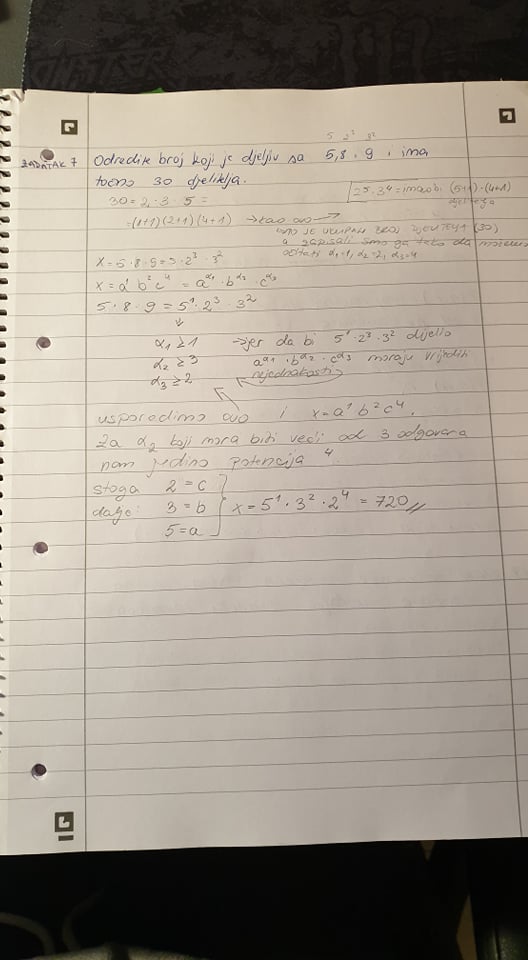 ZADATAK 7
5 2³ 3²
Odredite broj koji je djeljiv sa 5,8 i 9 i ima
točno 30 djelitelja.
30 = 2 · 3 · 5 =
2⁵ · 3⁴ = imao bi (5+1) · (4+1)
djelitelja
= (1+1)(2+1)(4+1) → kao ovo →
ovo JE UKUPAN BROJ DJELITELJA (30)
a zapisali smo ga tako da možemo
očitati α₁=1, α₂=2, α₃=4
x = 5 · 8 · 9 = 5 · 2³ · 3²
x = a¹ b² c⁴ = a^α₁ · b^α₂ · c^α₃
5 · 8 · 9 = 5¹ · 2³ · 3²
↓
α₁ ≥ 1 → jer da bi 5¹ · 2³ · 3² dijelio
α₂ ≥ 3 a^α₁ · b^α₂ · c^α₃ moraju vrijediti
α₃ ≥ 2 nejednakosti
usporedimo ovo i x = a¹ b² c⁴.
Za α₂ koji mora biti veći od 3 odgovara
nam jedino potencija 4.
stoga 2 = c
dalje: 3 = b x = 5¹ · 3² · 2⁴ = 720 //
5 = a